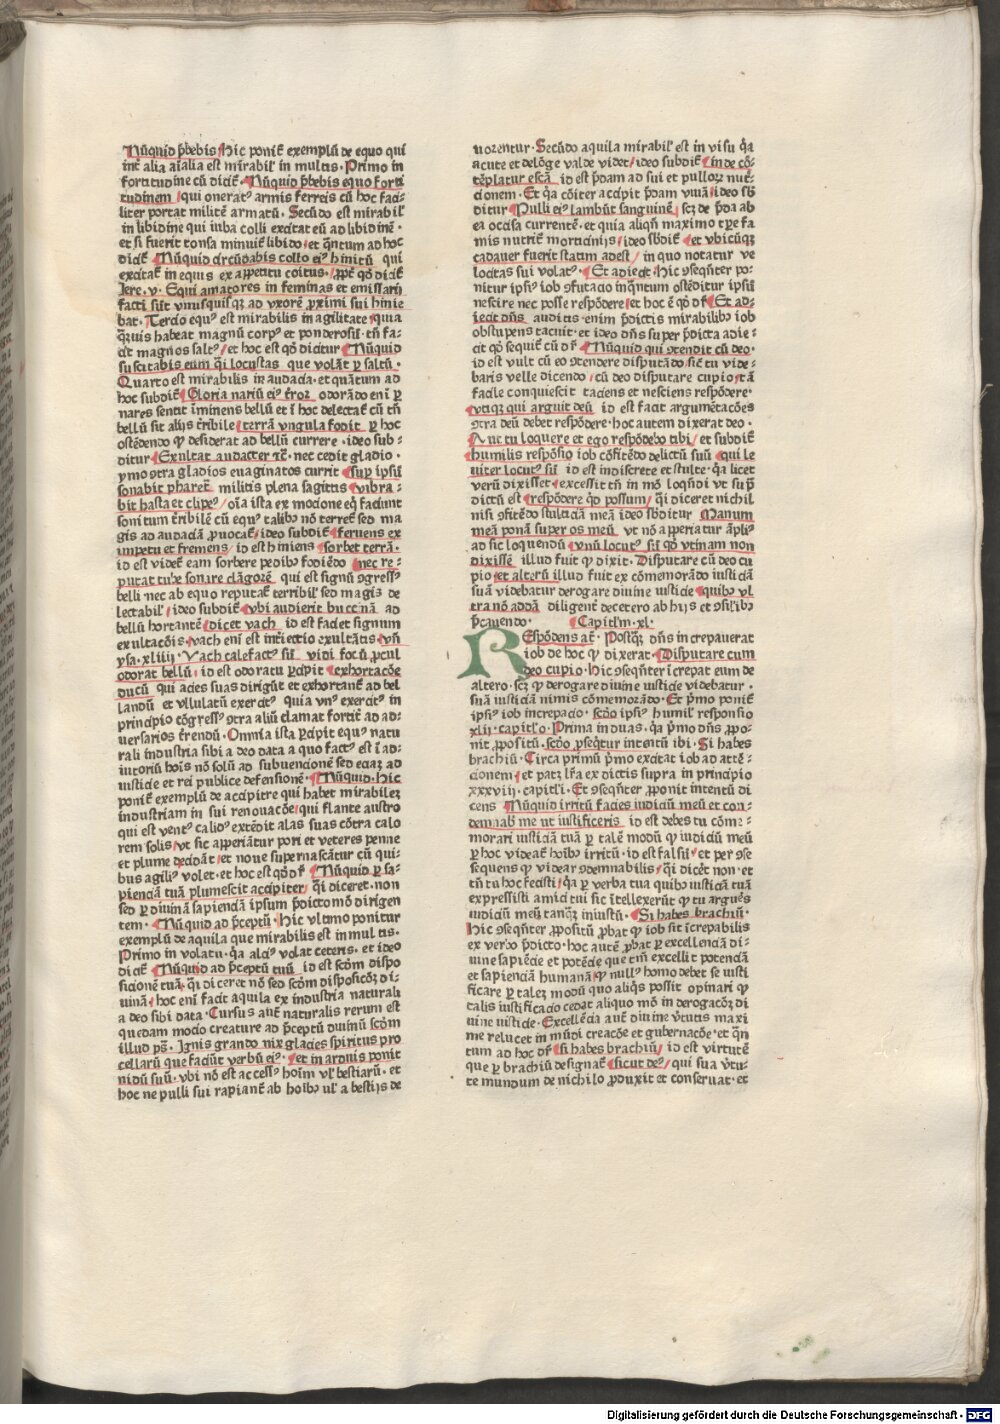 Nũquid p̄bebis Hic poniť exemplũ de equo qui
int̃ alia aĩalia est mirabiľ in multis. Primo in
fortitudine cũ diciť. Nũquid p̄bebis equo forti
tudinem qui oneratꝰ armis ferreis cũ hoc faci-
liter portat militẽ armatũ. Secũdo est mirabiľ
in libidine qui iuba colli excitat eũ ad libidinẽ.
et si fuerit tonsa minuiť libido et q̃ntum ad hoc
diciť Nũquid circũdabis collo eiꝰ hinitũ qui
excitať in equis ex appetitu coitus. ꝓpť qd̃ diciť
Jere. v. Equi amatores in feminas et emissarij
facti sũt vnusquisqꝫ ad vxorẽ ꝓximi sui hinie
bat. Tercio equꝰ est mirabilis in agilitate quia
q̃uis habeat magnũ corpꝰ et ponderosũ. tñ fa-
cit magnos saltꝰ et hoc est qd̃ dicitur Nũquid
suscitabis eum q̃i locustas que volãt ꝑ saltũ.
Quarto est mirabilis in audacia. et quãtum ad
hoc subdiť Gloria nariũ eiꝰ t̃ror odorãdo eni ꝑ
nares sentit ĩminens bellũ et ĩ hoc delectať cũ tñ
bellũ sit alijs t̃ribile terrã vngula fodit ꝑ hoc
ostẽdendo ꝙ desiderat ad bellũ currere. ideo sub-
ditur Exultat audacter ⁊c̃. nec cedit gladio.
ymo ꝯtra gladios euaginatos currit sup ipsũ
sonabit pharet̃ militis plena sagittis vibra-
bit hasta et clipeꝰ oĩa ista ex mocione eq̃ faciunt
sonitum t̃ribilẽ cũ equꝰ talibꝰ nõ terreť sed ma
gis ad audaciã ꝓuocať ideo subdiť feruens ex
impetu et fremens id est hiniens sorbet terrã.
id est videť eam sorbere pedibꝰ fodiẽdo nec re-
putat tube sonare clãgorẽ qui est signũ ꝯgressꝰ
belli nec ab equo reputať terribiľ sed magis de
lectabiľ ideo subdiť vbi audierit buccinã ad
bellũ hortantẽ dicet vach id est faciet signum
exultacõis. vach eni est int̃iectio exultãtis vñ
ysa. xliiij. Vach calefactꝰ sũ vidi focũ ꝓcul
odorat bellũ id est odoratu ꝑcipit exhortacõe
ducũ qui acies suas dirigũt et exhortanť ad bel
landũ et vllulatũ exercitꝰ quia vnꝰ exercitꝰ in
principio cõgressꝰ ꝯtra aliũ clamat fortiť ad ad-
uersarios t̃rendũ. Omnia ista ꝑcipit equꝰ natu
rali industria sibi a deo data a quo factꝰ est ĩ ad-
iutoriũ hoĩs nõ solũ ad subuencionẽ sed eciaꝫ ad
iusticie et rei publice defensionẽ. Nũquid. Hic
poniť exemplũ de accipitre qui habet mirabileꝫ
industriam in sui renouacõe qui flante austro
qui est ventꝰ calidꝰ extẽdit alas suas cõtra calo
rem solis vt sic apperiãtur pori et veteres penne
et plume decidãt et noue supernascãtur cũ qui-
bus agiliꝰ volet. et hoc est qd̃ dr̃ Nũquid ꝑ sa-
pienciã tuã plumescit accipiter q̃i diceret. non
sed ꝑ diuinã sapienciã ipsum p̃dicto mõ dirigen
tem. Nũquid ad p̄ceptũ. Hic vltimo ponitur
exemplũ de aquila que mirabilis est in multis.
Primo in volatu. q̃a alciꝰ volat ceteris. et ideo
diciť Nũquid ad p̄ceptũ tuũ id est scd̃m dispo
sicionẽ tuã. q̃i diceret nõ sed scd̃m disposicõꝫ di-
uinã. hoc eni facit aquila ex industria naturali
a deo sibi data. Cursus aũt naturalis rerum est
quedam modo creature ad p̄ceptũ diuinũ scd̃m
illud ps̃. Ignis grando nix glacies spiritus pro
cellarũ que faciũt verbũ eiꝰ. et in arduis ponit
nidũ suũ. vbi nõ est accessꝰ hoĩm vľ bestiarũ. et
hoc ne pulli sui rapianť ab hoĩbꝰ vľ a bestijs de
uorentur. Secũdo aquila mirabiľ est in visu q̃a
acute et delõge valde videt ideo subdiť inde cõ-
tẽplatur escã id est p̃dam ad sui et pulloꝝ nut̃-
cionem. Et q̃a cõiter accipit p̃dam viuã ideo sb̃
ditur Pulli eiꝰ lambũt sanguinẽ scꝫ de p̃da ab
ea occisa currentẽ. et quia aliqñ maximo tꝑe fa
mis nutriť morticinijs ideo sb̃diť et vbicũqꝫ
cadauer fuerit statim adest in quo notatur ve
locitas sui volatꝰ. Et adiecit. Hic ꝯseq̃nter po-
nitur ipsiꝰ iob ꝯfutacio inq̃ntum ostẽditur ipsũ
nescire nec posse respõdere et hoc ẽ qd̃ dr̃ Et ad-
iecit dñs auditis enim p̃dictis mirabilibꝰ iob
obstupens tacuit. et ideo dñs super p̃dicta adie-
cit qd̃ sequiť cũ dr̃ Nũquid qui ꝯtendit cũ deo.
id est vult cũ eo ꝯtendere disputãdo sicut tu vide-
baris velle dicendo cũ deo disputare cupio tã
facile conquiescit tacens et nesciens respõdere.
vtiqꝫ qui arguit deũ id est facit argumẽtacões
ꝯtra deũ debet respõdere. hoc autem dixerat deo.
Aut tu loquere et ego respõdebo tibi et subdiť
humilis respõsio iob cõfitẽdo delictũ suũ qui le
uiter locutꝰ sũ id est indiscrete et stulte. q̃a licet
verũ dixisset excessit tñ in mõ loq̃ndi vt sup̃
dictũ est respõdere q̃d possum q̃i diceret nichil
nisi ꝯfitẽdo stulticiã meã ideo sb̃ditur Manum
meã ponã super os meũ vt nõ apperiatur ãpliꝰ
ad sic loquendũ vnũ locutꝰ sũ qd̃ vtinam non
dixissẽ illud fuit ꝙ dixit. Disputare cũ deo cu
pio et alterũ illud fuit ex cõmemorãdo iusticiã
suã videbatur derogare diuine iusticie quibꝰ vl
tra nõ addã diligent̃ decetero ab hijs et ꝯsiľibꝰ
p̄cauendo. Capitľm .xl.
REspõdens aũt. Postq̃ꝫ dñs increpauerat
iob de hoc ꝙ dixerat. Disputare cum
deo cupio. Hic ꝯseq̃nter ĩcrepat eum de
altero. scꝫ ꝙ derogare diuine iusticie videbatur.
suã iusticiã nimis cõmemorãdo. Et p̃mo poniť
ipsiꝰ iob increpacio. scd̃o ipsiꝰ humiľ responsio
xlij. capitľo. Prima in duas. q̃a p̃mo dñs ꝓpo-
nit ꝓpositũ. scd̃o ꝓseq̃tur intentũ ibi. Si habes
brachiũ. Circa primũ p̃mo excitat iob ad attẽ-
cionem et patꝫ lr̃a ex dictis supra in principio
xxxviij. capitľi. Et ꝯseq̃nter ꝓponit intentũ di
cens Nũquid irritũ facies iudiciũ meũ et con-
demnabꝭ me vt iustificeris id est debes tu cõme-
morari iusticiã tuã ꝑ talẽ modũ ꝙ iudiciũ meũ
ꝑ hoc videať hoĩbꝰ irritũ. id est falsũ et per ꝯse
sequens ꝙ videar ꝯdemnabilis q̃i dicet̃ non. et
tñ tu hoc fecisti q̃a ꝑ verba tua quibꝰ iusticiã tuã
expressisti amici tui sic ĩtellexerũt ꝙ tu argues
iudiciũ meũ tanq̃ꝫ iniustũ. Si habes brachiũ.
Hic ꝯseq̃nter ꝓpositũ ꝓbat ꝙ iob sit ĩcrepabilis
ex verbo p̃dicto. hoc autẽ ꝓbat ꝑ excellenciã di-
uine sapiẽcie et potẽcie que em̃ excellit potenciã
et sapienciã humanã ꝙ nullꝰ homo debet se iusti
ficare ꝑ taleꝫ modũ quo aliq̃s possit opinari ꝙ
talis iustificacio cedat aliquo mõ in derogacõꝫ di
uine iusticie. Excellẽcia aũt diuine v̓tutis maxi
me relucet in mũdi creacõe et gubernacõe. et q̃n
tum ad hoc dr̃ si habes brachiũ id est virtutẽ
que ꝑ brachiũ designať sicut deꝰ qui sua v̓tu-
te mundum de nichilo ꝓduxit et conseruat. et
Digitalisierung gefördert durch die Deutsche Forschungsgemeinschaft - DFG